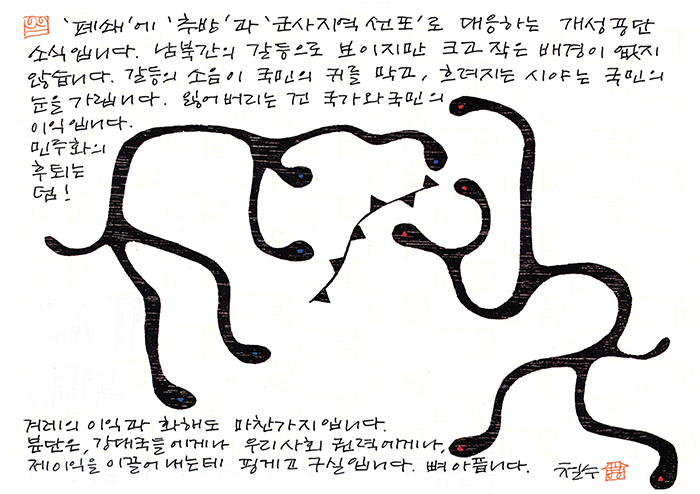 '폐쇄'에 '추방'과 '군사지역 선포'로 대응하는 개성공단
소식입니다. 남북간의 갈등으로 보이지만 크고 작은 배경이 없지
않습니다. 갈등의 소음이 국민의 귀를 막고, 흐려지는 시야는 국민의
눈을 가립니다. 잃어버리는 건 국가와 국민의
이익입니다.
민주화의
후퇴는
덤!
겨레의 이익과 화해도 마찬가지입니다.
분단은, 강대국들에게나 우리사회 권력에게나,
제 이익을 이끌어 내는데 핑계고 구실입니다. 뼈아픕니다. 철수